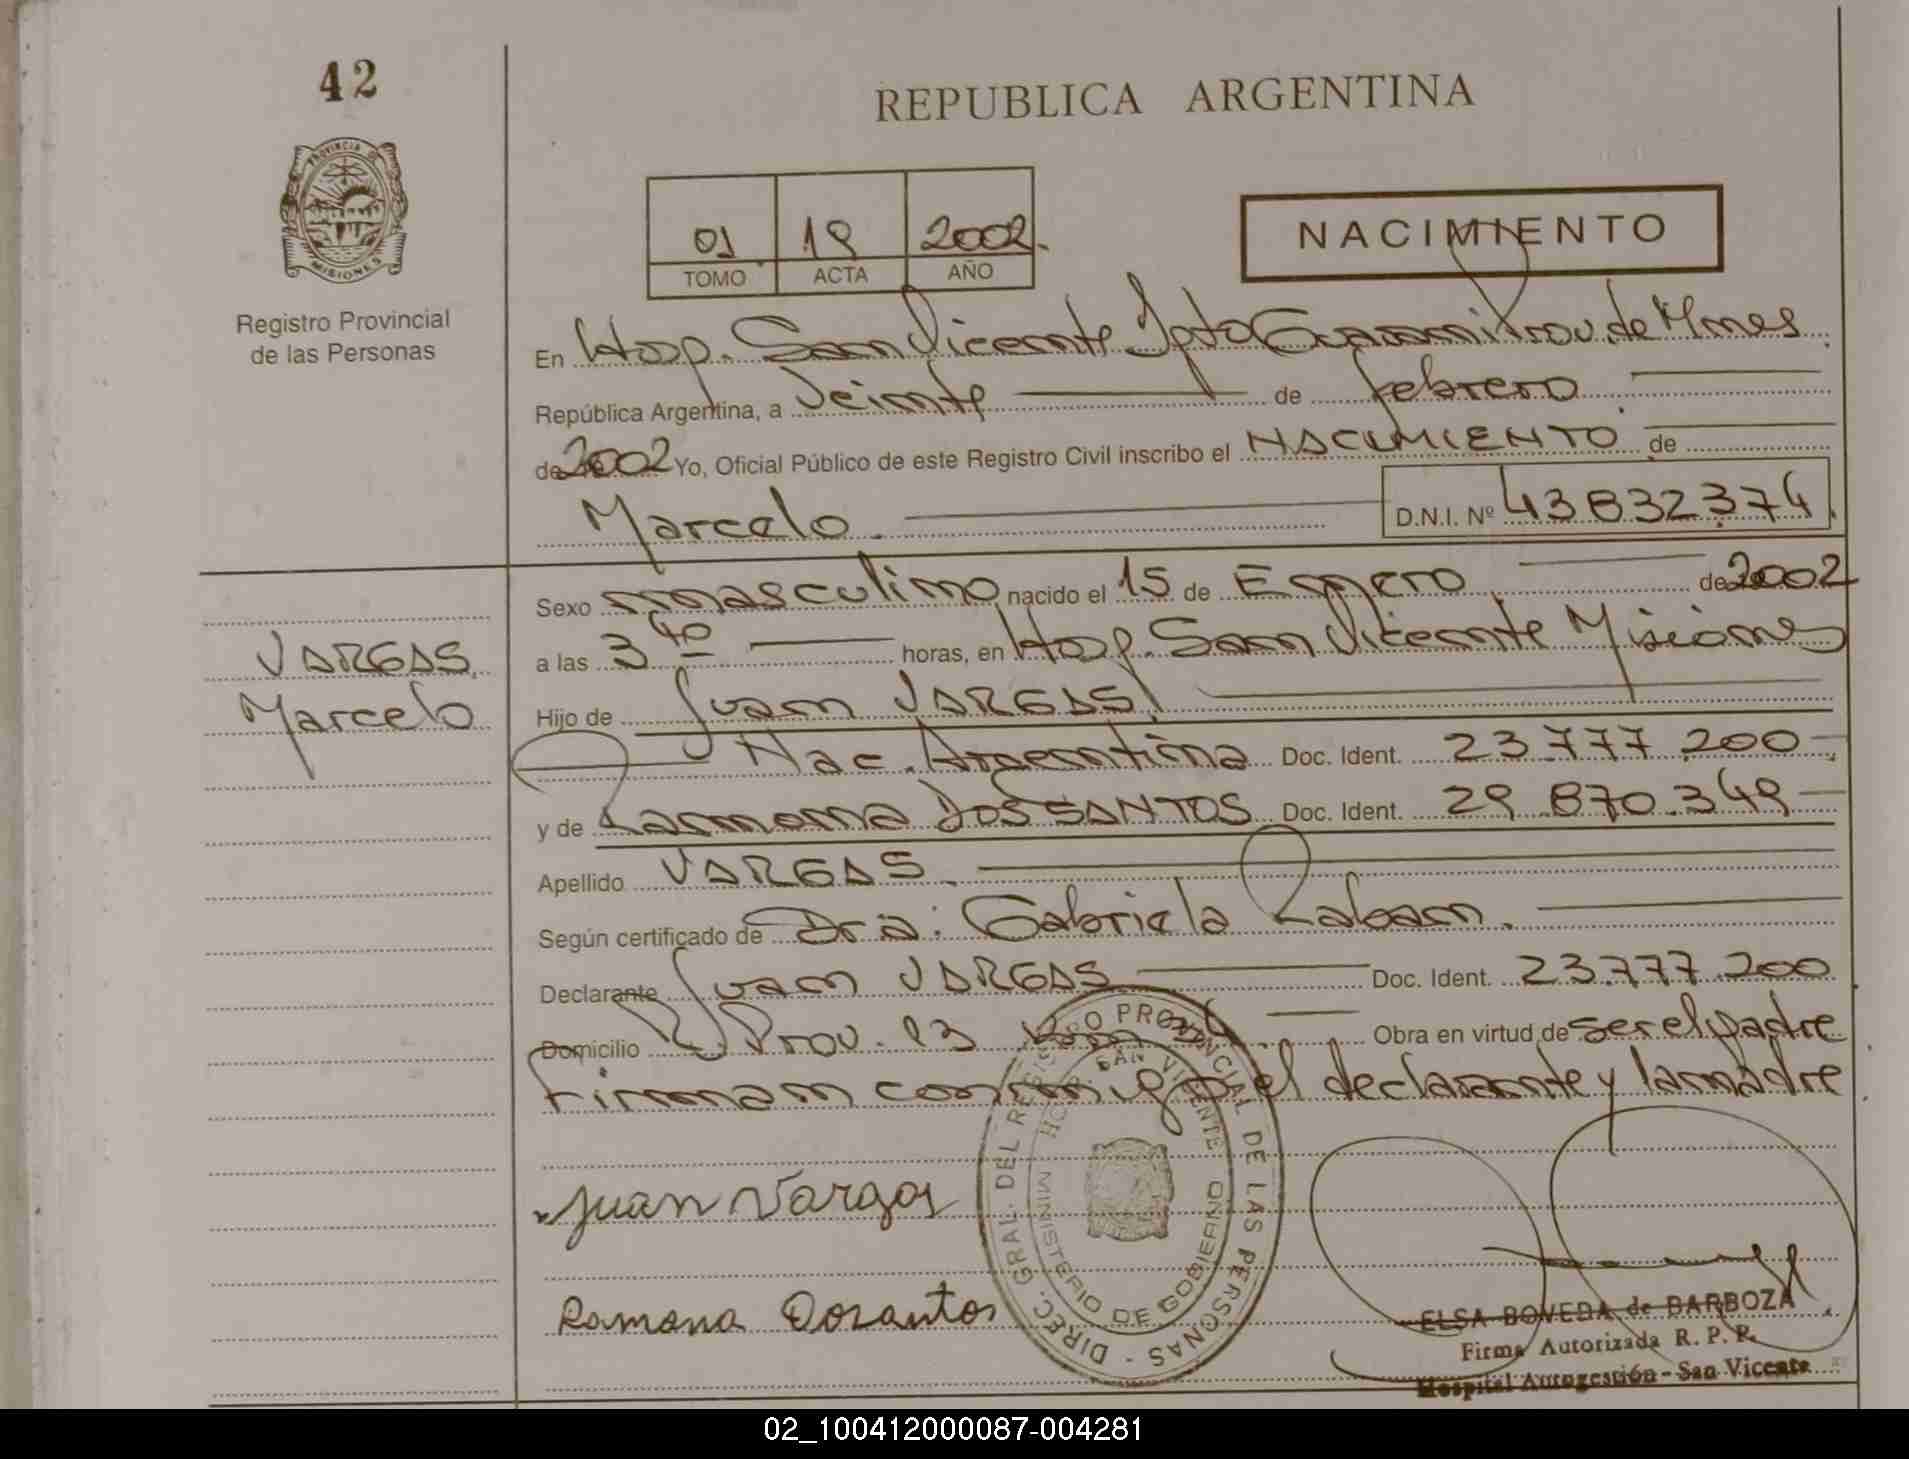 42
REPUBLICA ARGENTINA
PROVINCIA DE
MISIONES
Registro Provincial
de las Personas
01 19 2002.
TOMO ACTA AÑO
NACIMIENTO
En Hosp. San Vicente Dpto Guarani Prov. de Mnes
República Argentina, a Veinte de febrero
de 2002 Yo, Oficial Público de este Registro Civil inscribo el NACIMIENTO de
Marcelo. D.N.I. Nº 43832374
VARGAS
Marcelo
Sexo masculino nacido el 15 de Enero de 2002
a las 3 40 horas, en Hosp. San Vicente Misiones
Hijo de Juan VARGAS
Nac. Argentina Doc. Ident. 23.777.200
y de Ramona DOS SANTOS Doc. Ident. 29.870.349
Apellido VARGAS.
Según certificado de Dra: Gabriela Laban.
Declarante Juan VARGAS Doc. Ident. 23.777.200
Domicilio R. Prov. 13 Obra en virtud de ser el padre
firman conmigo el declarante y la madre
DIREC. GRAL. DEL REGISTRO PROVINCIAL DE LAS PERSONAS
HOSP SAN VICENTE
MINISTERIO DE GOBIERNO
Juan Vargas
Ramona Dosantos
ELSA BOVEDA de BARBOZA
Firma Autorizada R. P. P.
Hospital Autogestión - San Vicente
02_100412000087-004281